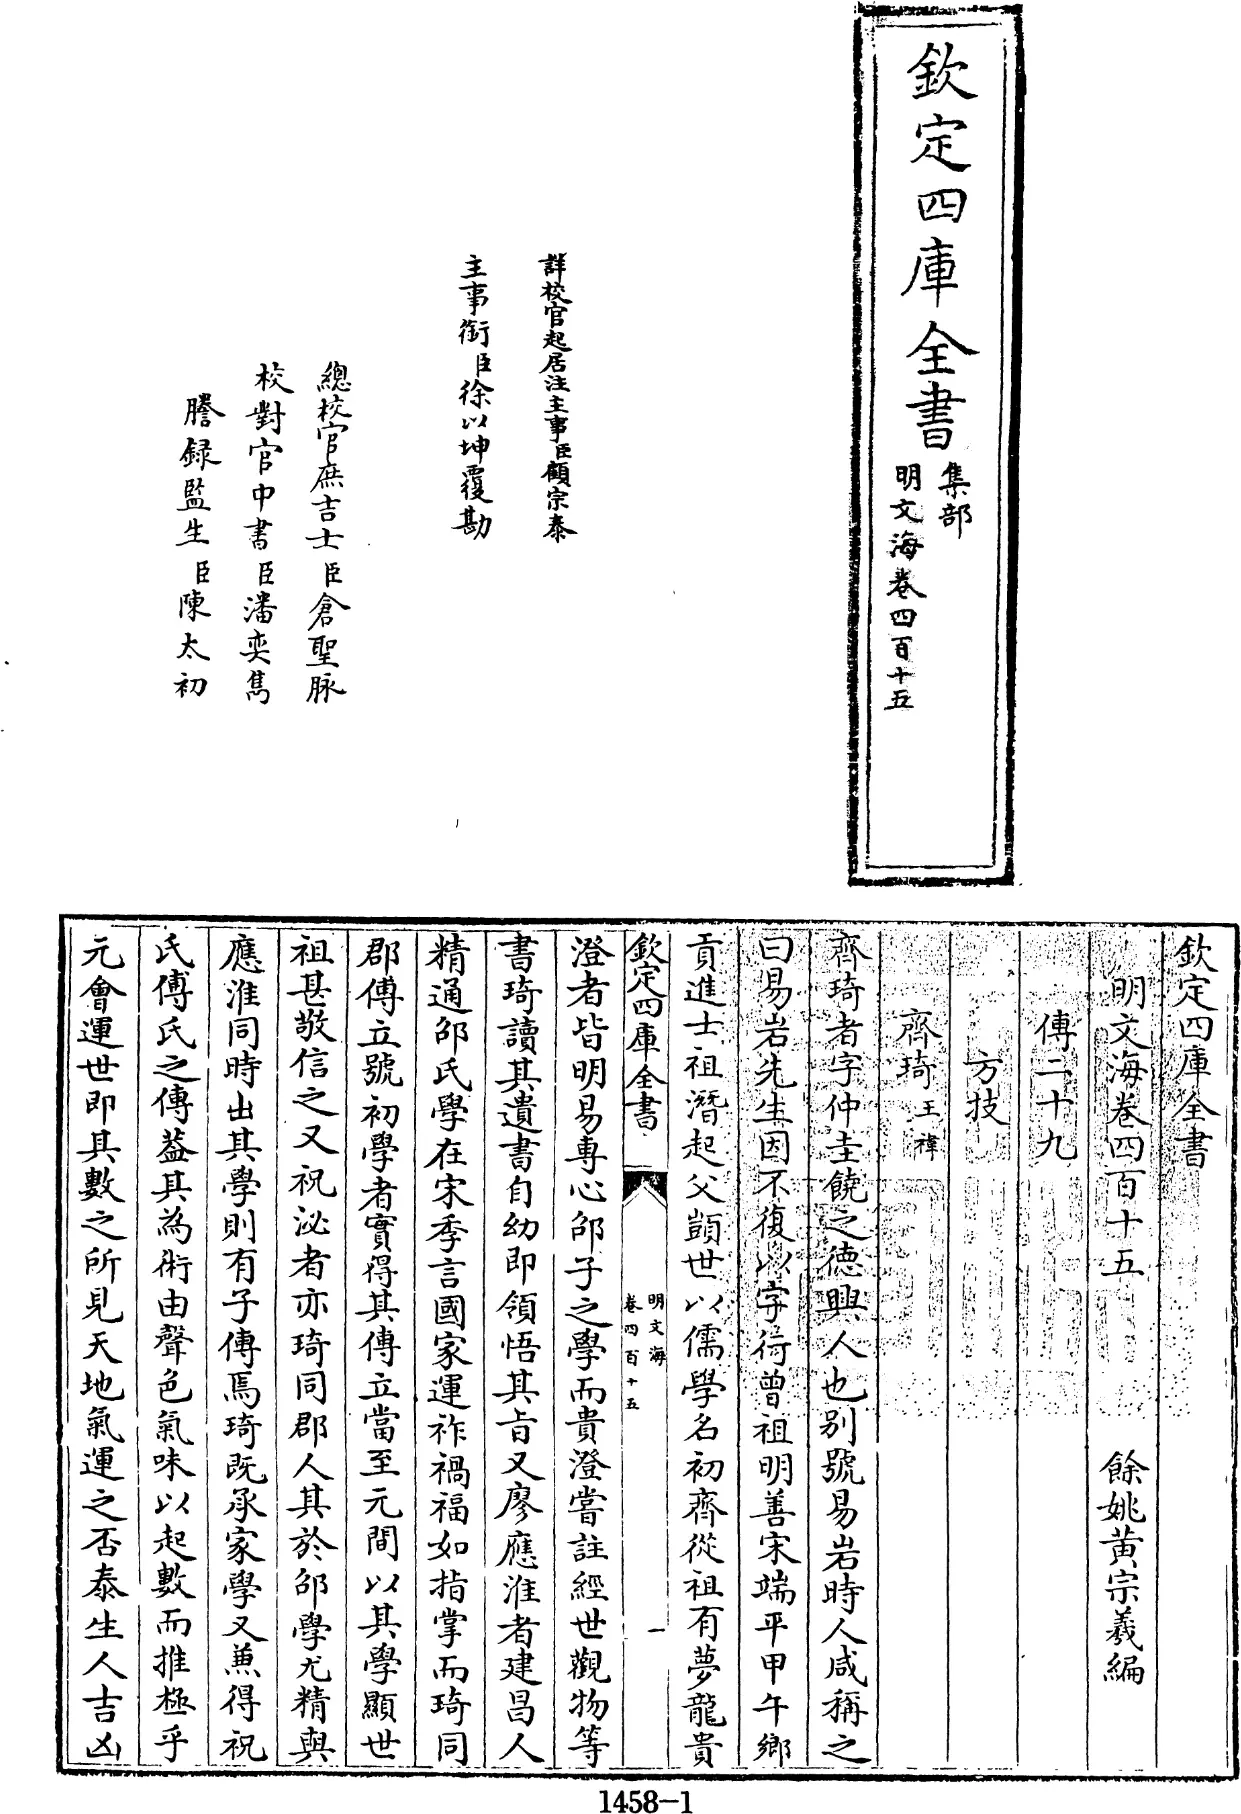 欽定四庫全書
集部
明文海卷四百十五
詳校官起居注主事臣顧宗泰
主事銜臣徐以坤覆勘
總校官庶吉士臣倉聖脉
校對官中書臣潘奕雋
謄録監生臣陳太初
欽定四庫全書
明文海卷四百十五 餘姚黄宗羲編
傳二十九
方技
齊琦 王褘
齊琦者字仲圭饒之德興人也别號易岩時人咸稱之
曰易岩先生因不復以字行曾祖明善宋端平甲午鄉
貢進士祖潛起父顗世以儒學名初齊從祖有夢龍貴
欽定四庫全書
明文海
卷四百十五
一
澄者皆明易專心邵子之學而貴澄嘗註經世觀物等
書琦讀其遺書自幼即領悟其㫖又廖應淮者建昌人
精通邵氏學在宋季言國家運祚禍福如指掌而琦同
郡傅立號初學者實得其傳立當至元間以其學顯世
祖甚敬信之又祝泌者亦琦同郡人其於邵學尤精與
應淮同時出其學則有子傳焉琦既承家學又兼得祝
氏傅氏之傳葢其為術由聲色氣味以起數而推極乎
元會運世即其數之所見天地氣運之否泰生人吉凶
1458-1